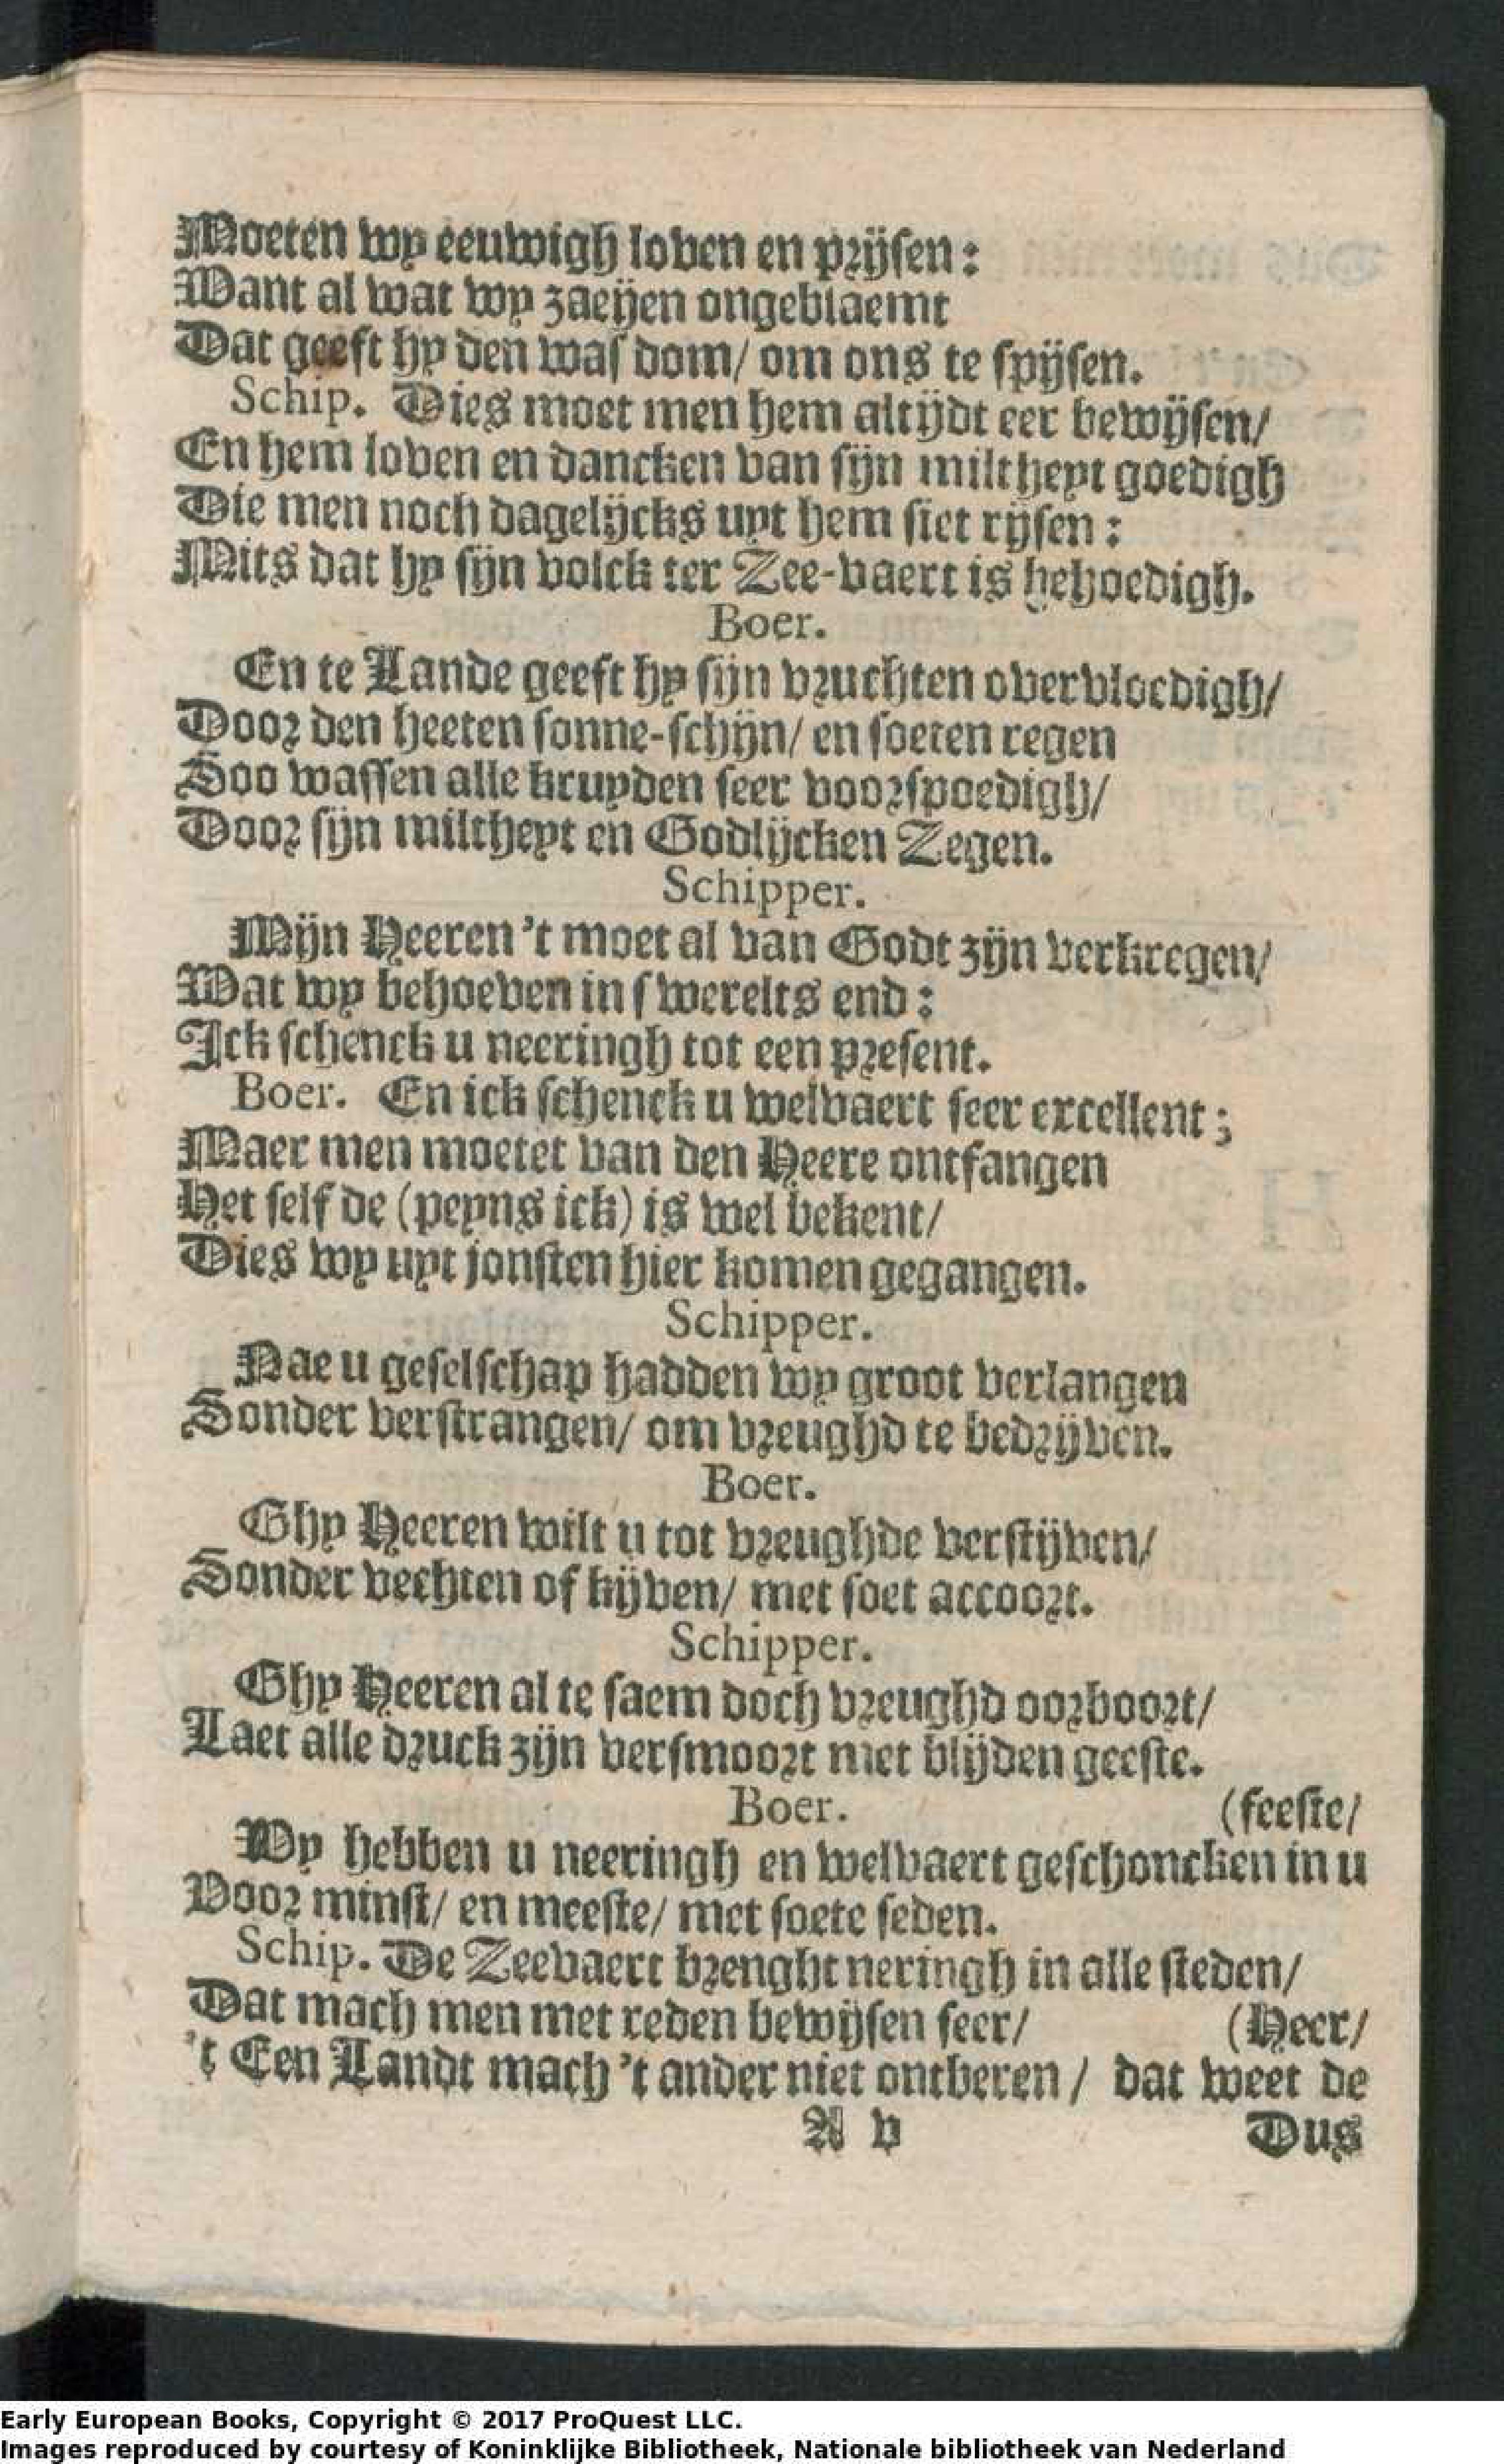 Moeten wy eeuwigh loven en prijsen:
Want al wat wy zaeyen ongeblaemt
Dat geeft hy den wasdom/ om ons te spijsen.
Schip. Dies moet men hem altijdt eer bewijsen/
En hem loven en dancken van sijn miltheyt goedigh
Die men noch dagelijcks uyt hem siet rijsen:
Mits dat hy sijn volck ter Zee-vaert is behoedigh.
Boer.
En te Lande geeft hy sijn vruchten overvloedigh/
Door den heeten sonne-schijn/ en soeten regen
Soo wassen alle kruyden seer voorspoedigh/
Door sijn miltheyt en Godlijcken Zegen.
Schipper.
Mijn Heeren 't moet al van Godt zijn verkregen/
Wat wy behoeven in swerelts end:
Ick schenck u neeringh tot een present.
Boer. En ick schenck u welvaert seer excellent;
Maer men moetet van den Heere ontfangen
Het selfde (peyns ick) is wel bekent/
Dies wy uyt jonsten hier komen gegangen.
Schipper.
Nae u geselschap hadden wy groot verlangen
Sonder verstrangen/ om vreughd te bedrijven.
Boer.
Ghy Heeren wilt u tot vreughde verstijven/
Sonder vechten of kijven/ met soet accoort.
Schipper.
Ghy Heeren al te saem doch vreughd oorboort/
Laet alle druck zijn versmoort met blijden geeste.
Boer. (feeste/
Wy hebben u neeringh en welvaert geschoncken in u
Voor minst/ en meeste/ met soete seden.
Schip. De Zeevaert brenght neringh in alle steden/
Dat mach men met reden bewijsen seer/ (Heer/
't Een Landt mach 't ander niet ontberen/ dat weet de
A v Dus
Early European Books, Copyright © 2017 ProQuest LLC.
Images reproduced by courtesy of Koninklijke Bibliotheek, Nationale bibliotheek van Nederland